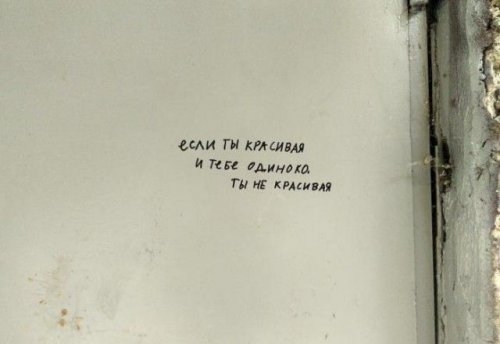 если ты красивая
и тебе одиноко.
ты не красивая